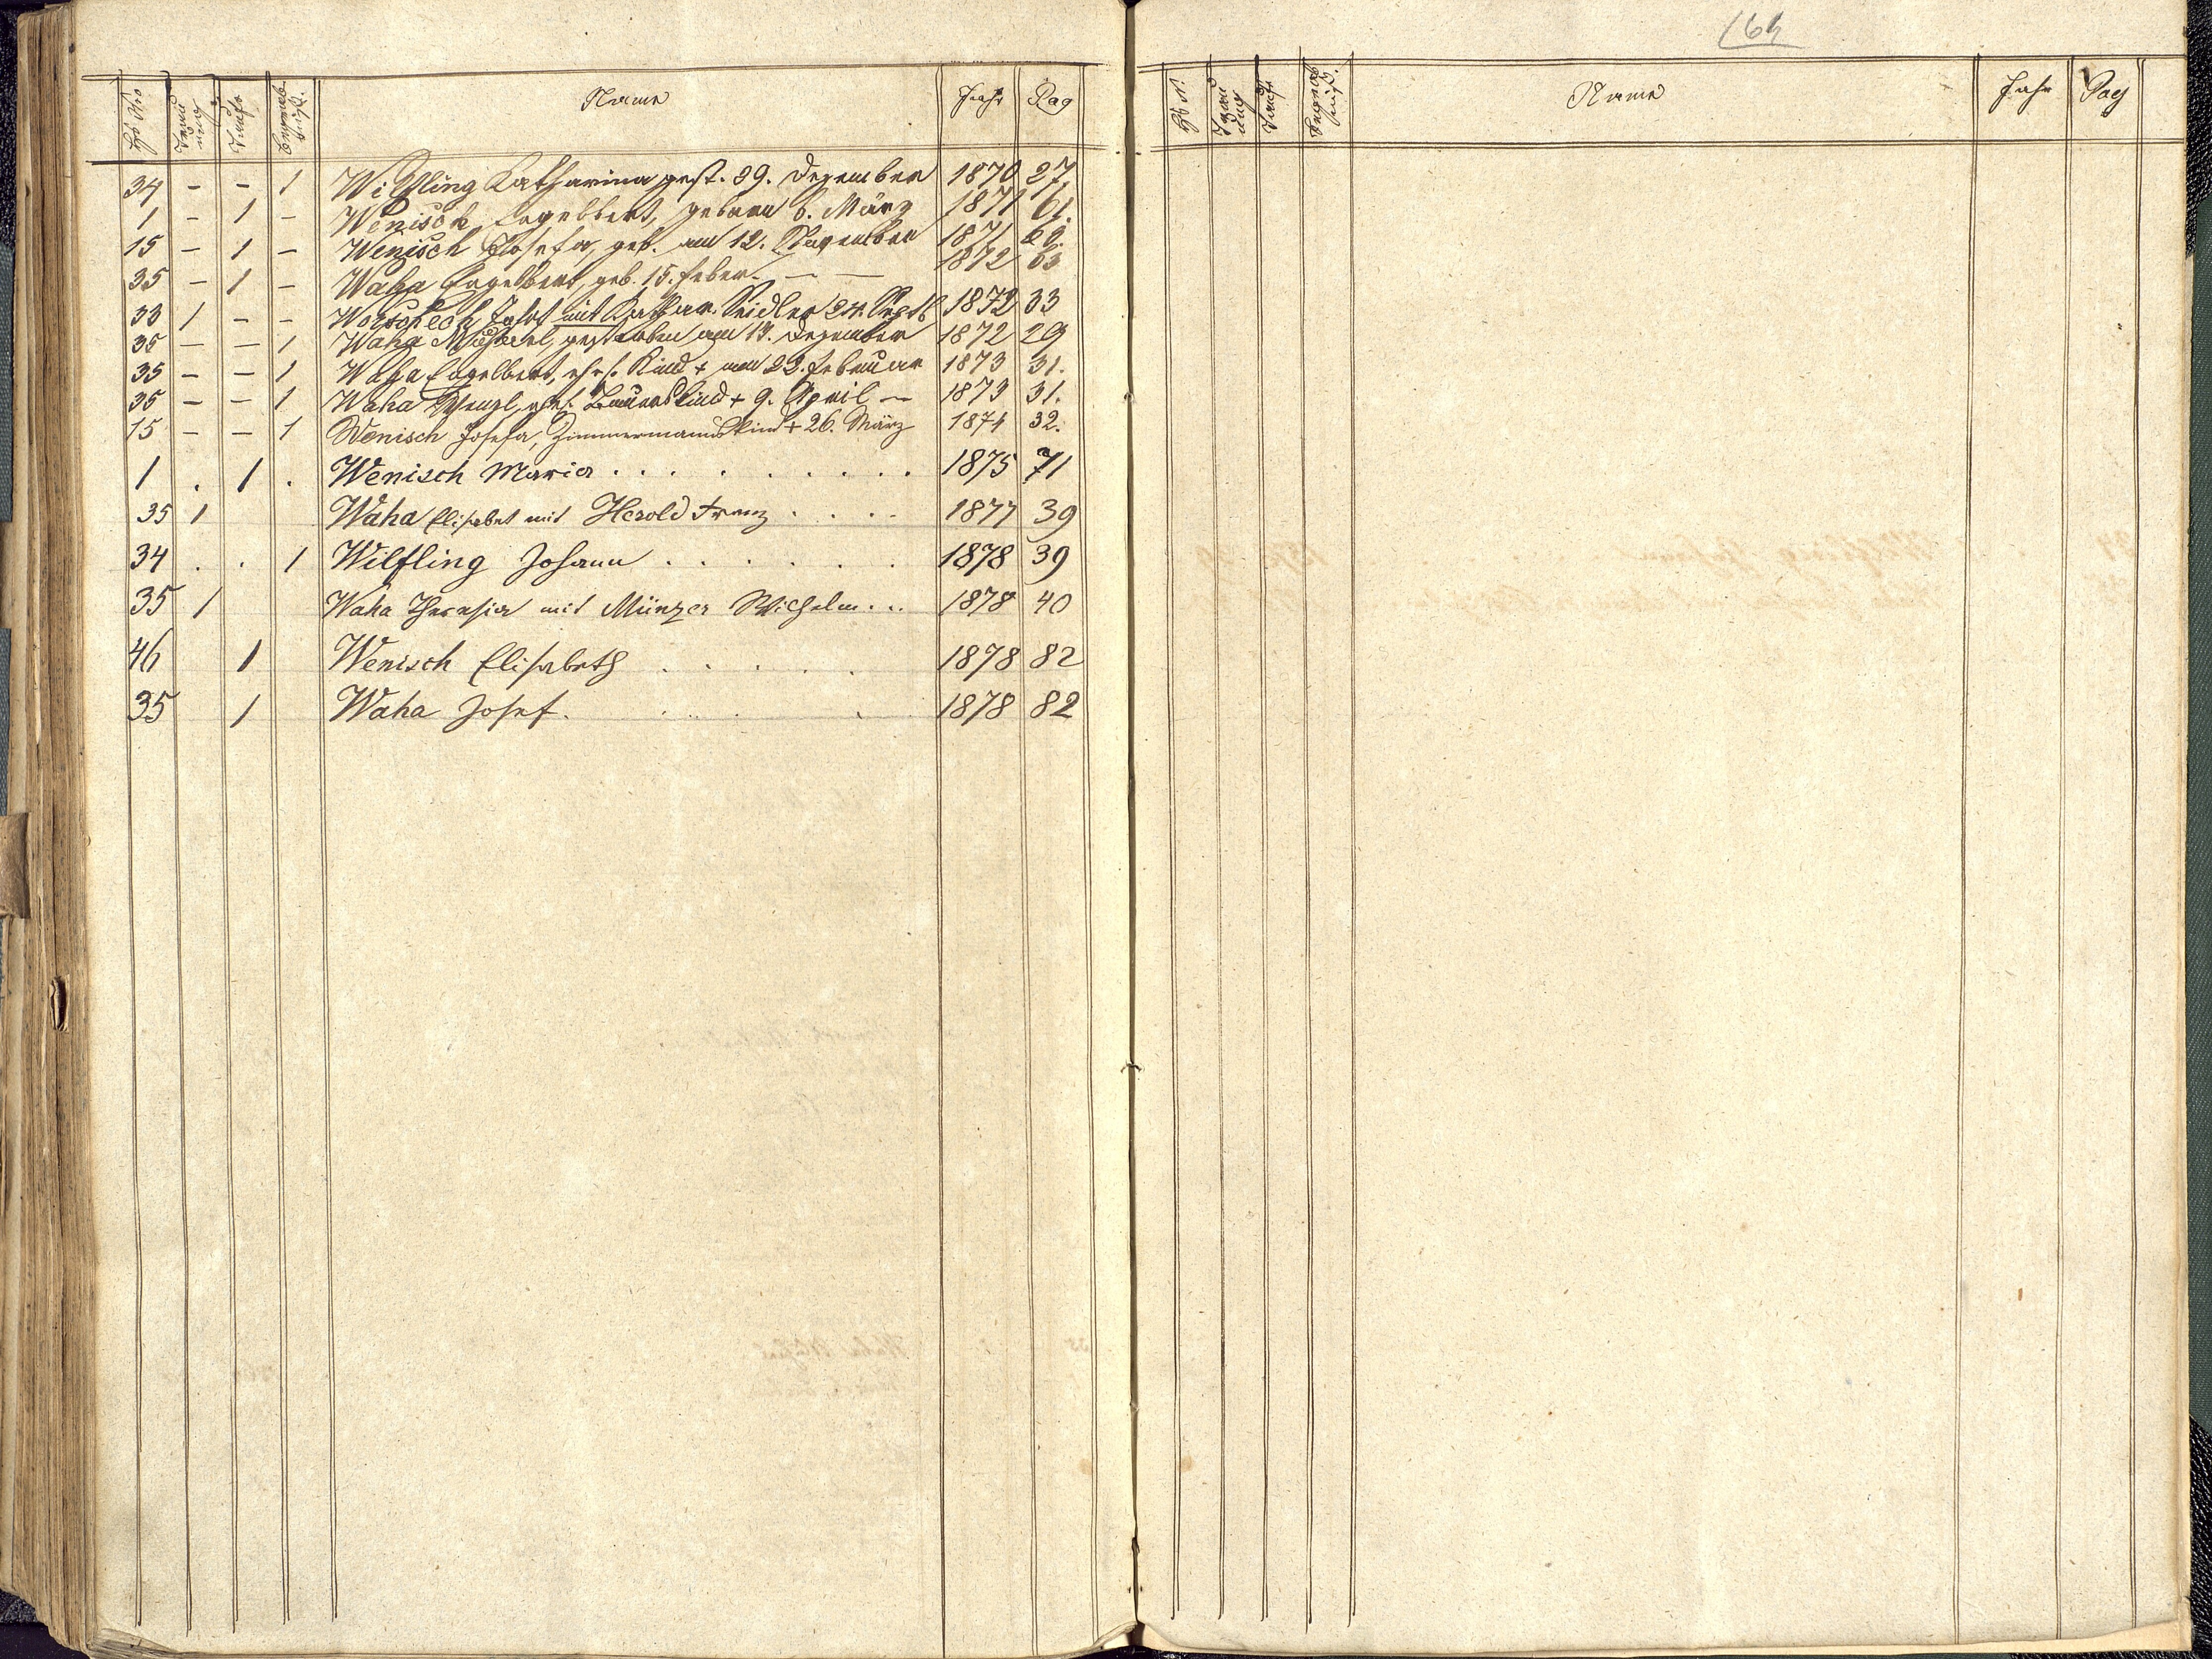 Hs Nro Trauung Taufe Begräbniß. Name Jahr Pag
34 - - 1 Wilfling Katharina gest. 29. Dezember 1870 27
1 - 1 - Wenisch Engelbert, geboren 6. März 1871 61.
15 - 1 - Wenisch Josefa, geb. am 12. November 1871 62.
35 - 1 - Waha Engelbert, geb. 15. Feber. — — 1872 63
33 1 - - Josef mit Kathar. Seidler 24. Septb 1872 33
35 - - 1 Waha Michael, gestorben am 13. Dezember 1872 29
35 - - 1 Waha Engelbert, ehel. Kind + am 22. Februar 1873 31.
35 - - 1 Waha Wenzl, ehel. Bauerskind + 9. April — 1873 31.
15 - - 1 Wenisch Josefa, Zimmermannskind + 26. März 1874 32.
1 . 1 . Wenisch Maria . . . . . . . . . 1875 71
35 1 Waha Elisabet mit Herold Franz . . . . 1877 39
34 . . 1 Wilfling Johann . . . . . . 1878 39
35 1 Waha Theresia mit Münzer Wilhelm . .. 1878 40
46 1 Wenisch Elisabeth . . . . . 1878 82
35 1 Waha Josef . . . . . 1878 82
164
Hs N. Trauung Taufe Begräbniß. Name Jahr Pag